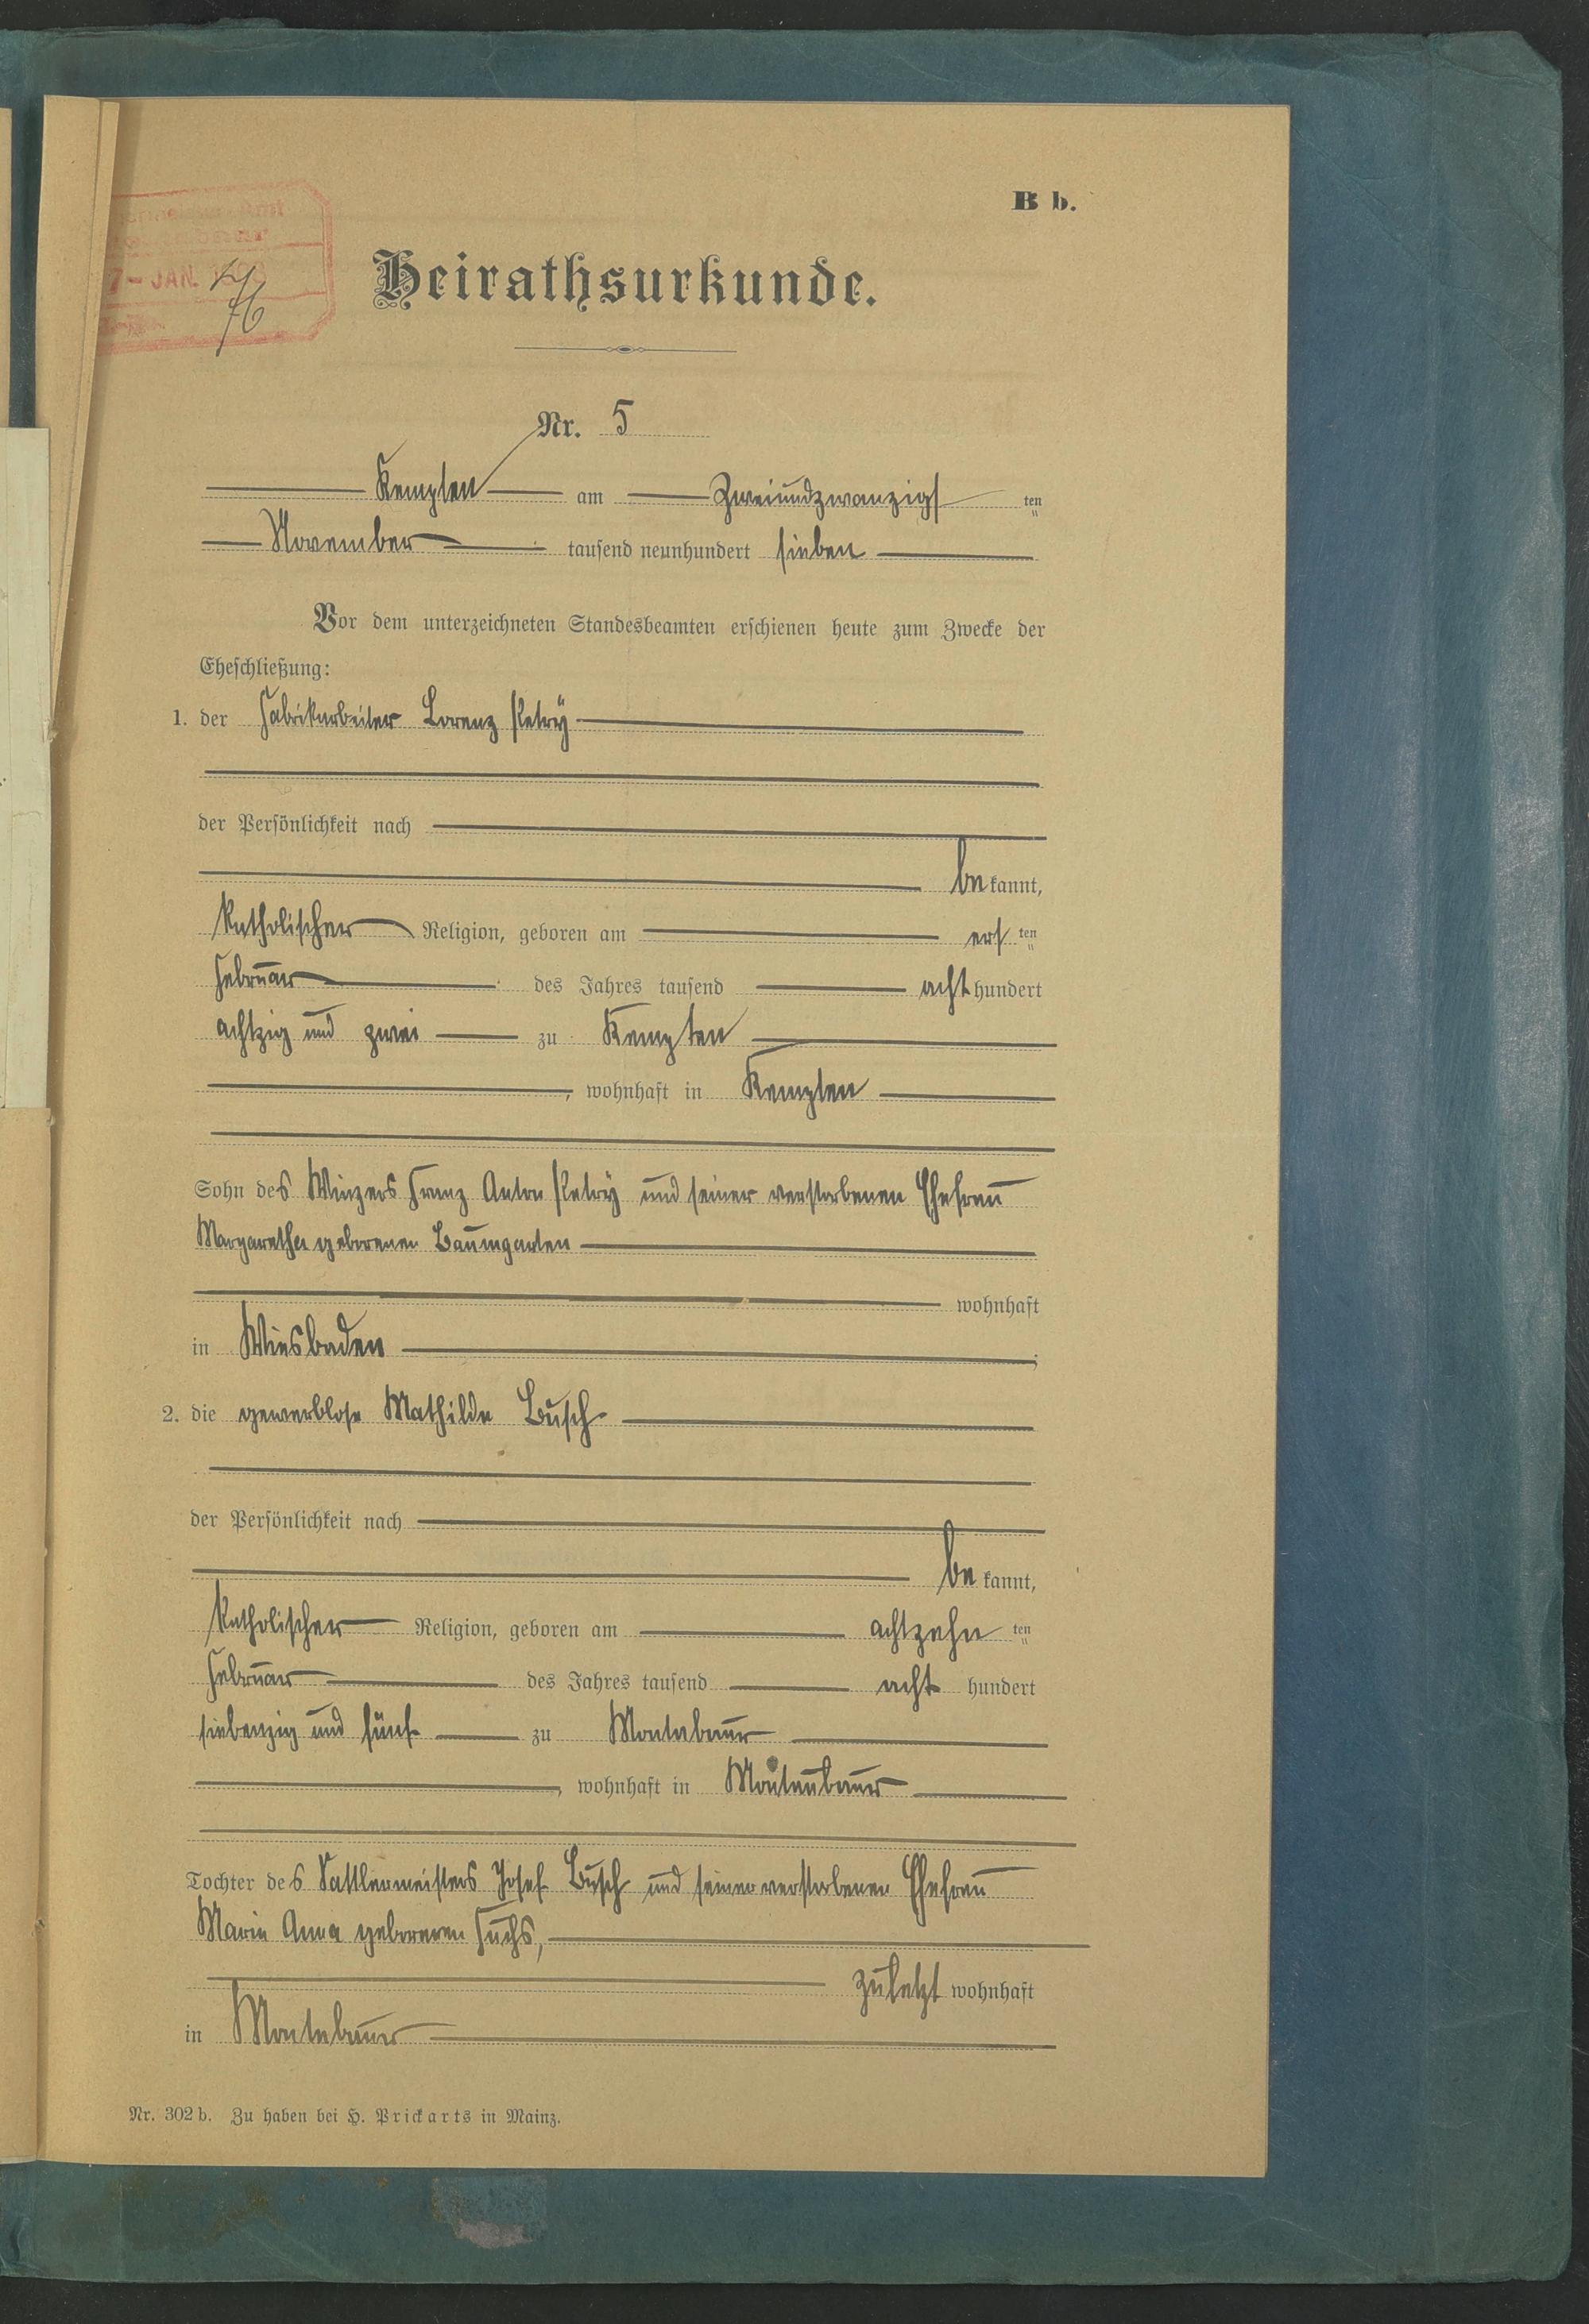 B b.
7- JAN.
76
Heirathsurkunde.
Nr. 5
Kempten am Zweiundzwanzigsten
November tausend neunhundert sieben
Vor dem unterzeichneten Standesbeamten erschienen heute zum Zwecke der
Eheschließung:
1. der Fabrikarbeiter Lorenz Petry
der Persönlichkeit nach
bekannt,
katholischer Religion, geboren am ersten
Februar des Jahres tausend achthundert
achtzig und zwei zu Kempten
, wohnhaft in Kempten
Sohn des Winzers Franz Anton Petry und seiner verstorbenen Ehefrau
Margaretha geborenen Baumgarten
wohnhaft
in Wiesbaden ;
2. die gewerblose Mathilde Busch
der Persönlichkeit nach
bekannt,
katholischer Religion, geboren am achtzehnten
Februar des Jahres tausend acht hundert
siebenzig und fünf zu Montabaur
, wohnhaft in Montabaur
Tochter des Sattlermeisters Josef Busch und seiner verstorbenen Ehefrau
Maria Anna geborenen Fuchs,
zuletzt wohnhaft
in Montabaur
Nr. 302 b. Zu haben bei H. Prickarts in Mainz.